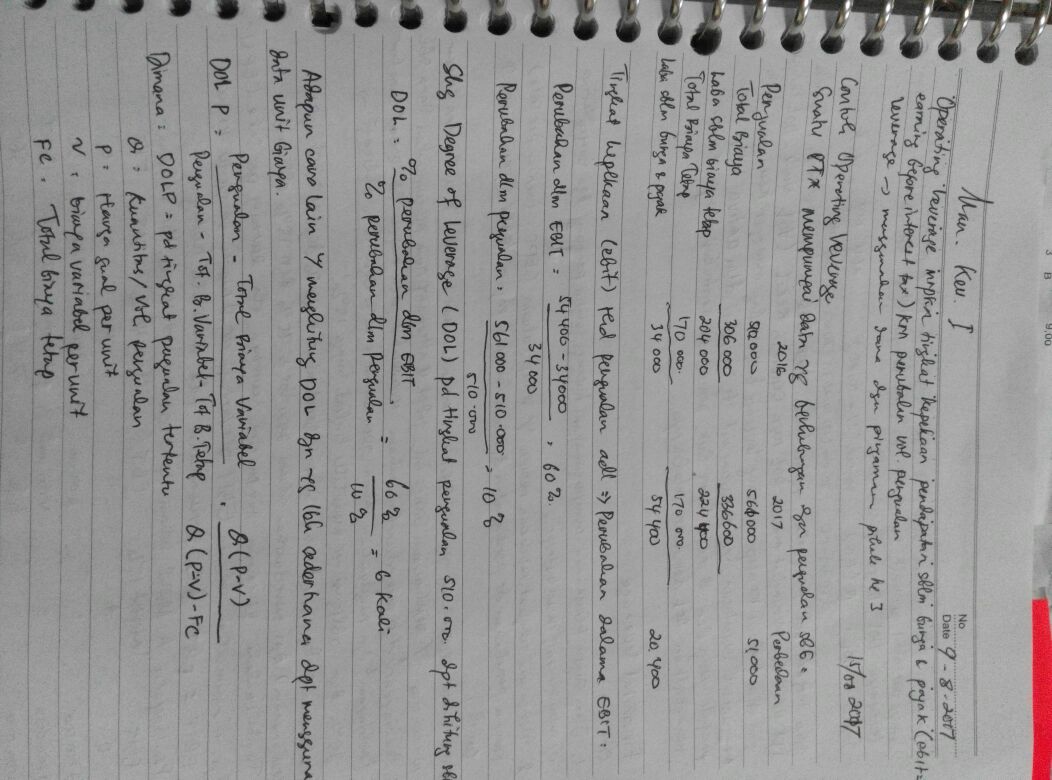 3 B 9.00
No
Date 9-8-2017
Man. Keu I
Operating leverage mrpkn tingkat kepekaan pendapatan sblm bunga & pajak (ebit =
earning before interest tax) krn perubahan vol. penjualan
leverage → menggunakan dana dgn pinjaman pihak ke 3
15/08 2017
Contoh Operating Leverage
Suatu PTX mempunyai data yg berhubungan dgn penjualan sbb =
2016 2017 Perbedaan
Penjualan 510 000 561 000 51 000
Total Biaya 306 000 336600
Laba sblm biaya tetap 204 000 224 400
Total Biaya Tetap 170 000 170 000
Laba sblm bunga & pajak 34 000 54 400 20 400
Tingkat kepekaan (ebit) thd penjualan adl => Perubahan dalam EBIT =
Perubahan dlm EBIT = 54 400 - 34000 = 60 %
34 000
Perubahan dlm penjualan = 561 000 - 510.000 = 10 %
510.000
Shg Degree of leverage (DOL) pd tingkat penjualan 510.000 dpt dihitung sb
DOL = % perubahan dlm EBIT = 60 % = 6 kali
% perubahan dlm penjualan 10 %
Adapun cara lain y menghitung DOL dgn yg lbh sederhana dpt mengguna
data unit biaya.
DOL P = Penjualan - Total Biaya Variabel = Q (P-V)
Penjualan - Tot. B. Variabel - Tot B. Tetap Q (P-V) - FC
Dimana = DOLP = pd tingkat penjualan tertentu
Q = Kuantitas / Vol. penjualan
P = Harga jual per unit
V = biaya variabel per unit
FC = Total biaya tetap